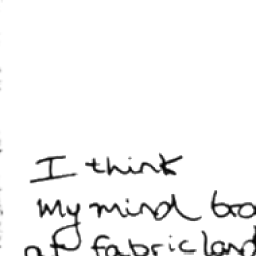 I think
my mind
of fabricland